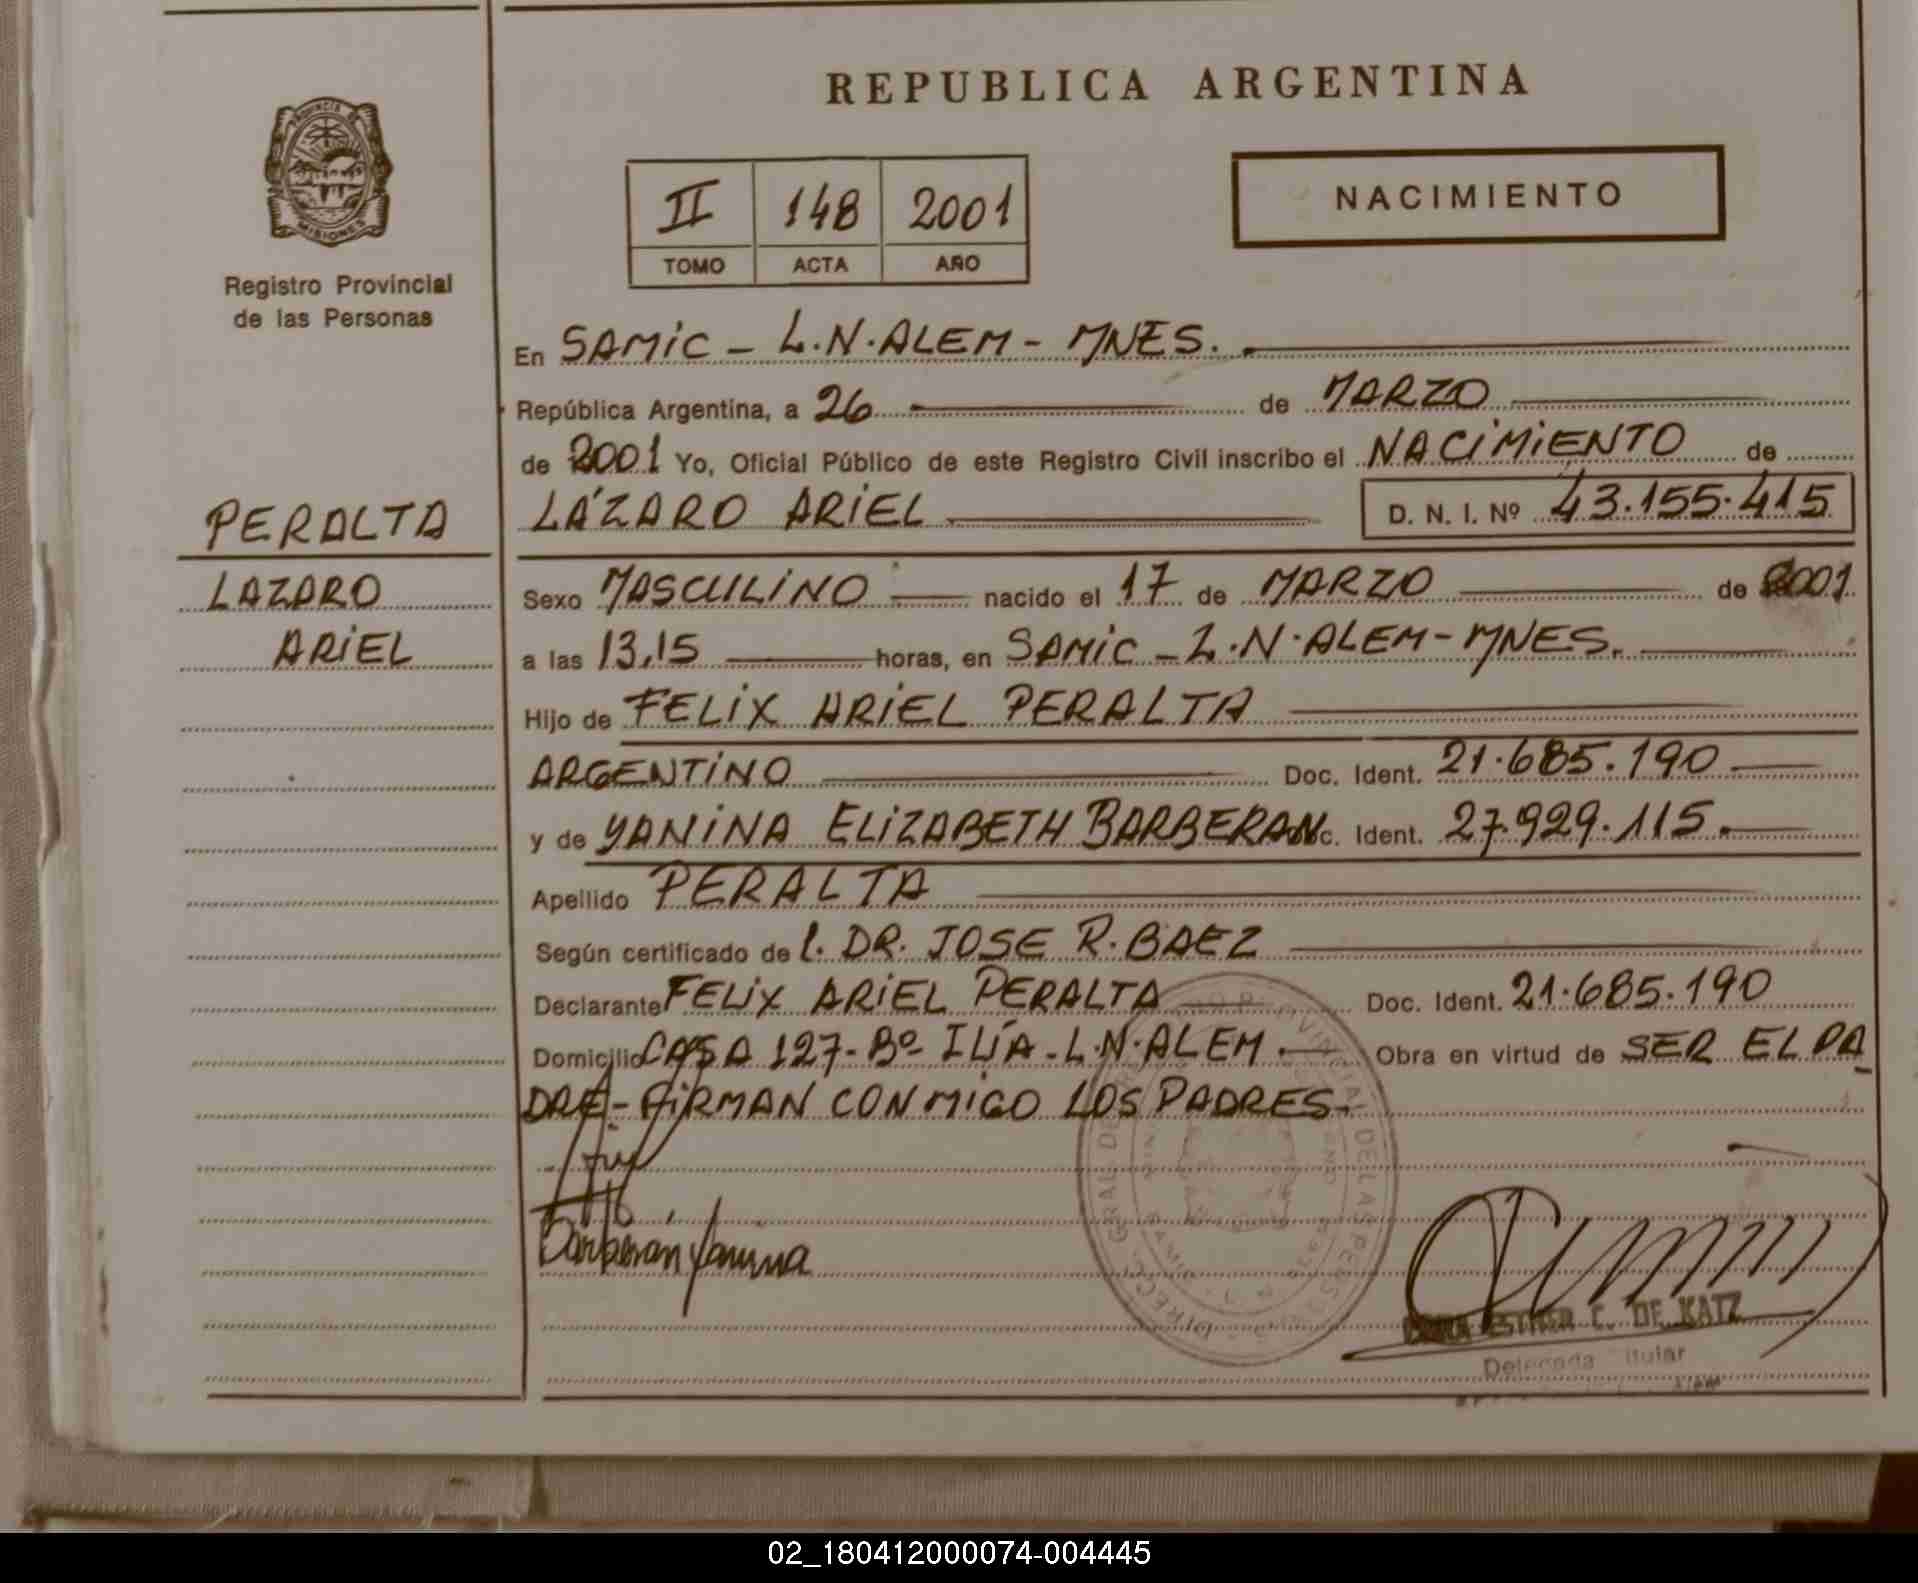 REPUBLICA ARGENTINA
PROVINCIA DE
MISIONES
Registro Provincial
de las Personas
II 148 2001
TOMO ACTA AÑO
NACIMIENTO
En SAMIC - L.N.ALEM - MNES.
República Argentina, a 26 de MARZO
de 2001 Yo, Oficial Público de este Registro Civil inscribo el NACIMIENTO de
PERALTA
LÁZARO ARIEL D. N. I. Nº 43.155.415
LAZARO
ARIEL
Sexo MASCULINO nacido el 17 de MARZO de 2001
a las 13,15 horas, en SAMIC - L.N.ALEM - MNES.
Hijo de FELIX ARIEL PERALTA
ARGENTINO Doc. Ident. 21.685.190
y de YANINA ELIZABETH BARBERAN Doc. Ident. 27.929.115.
Apellido PERALTA
Según certificado de l. DR. JOSE R. BAEZ
Declarante FELIX ARIEL PERALTA Doc. Ident. 21.685.190
Domicilio CASA 127-Bº ILÍA-L.N.ALEM. Obra en virtud de SER EL PA
DRE- FIRMAN CONMIGO LOS PADRES-
Barberán Yanina
ESTHER C. DE KATZ
Delegada Titular
02_180412000074-004445